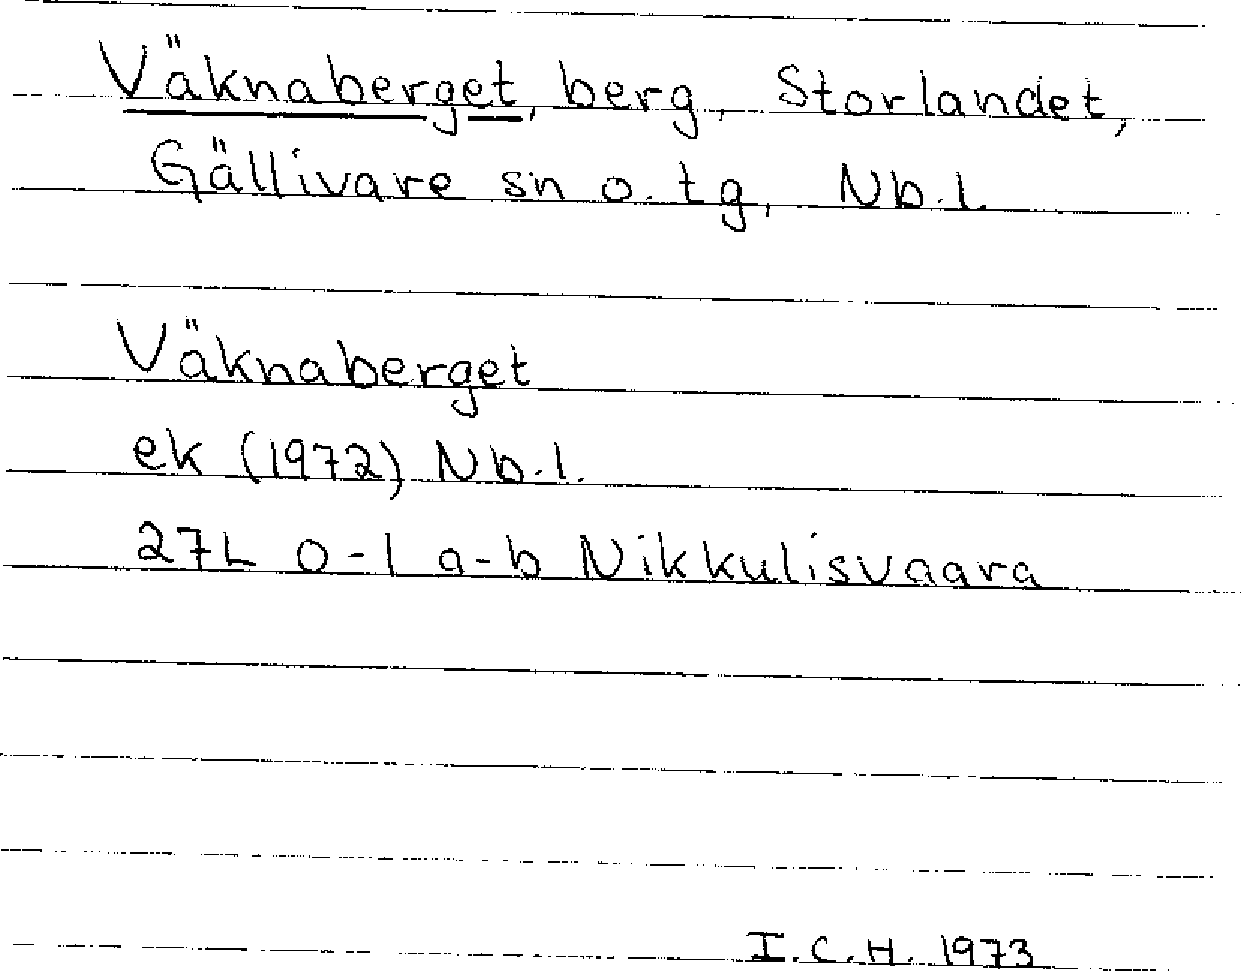 Väknaberget, berg, Storlandet,
Gällivare sn o. tg, Nb.l
Väknaberget
ek (1972) Nb.l.
27L 0-1 a-b Nikkulisvaara
I.C.H. 1973